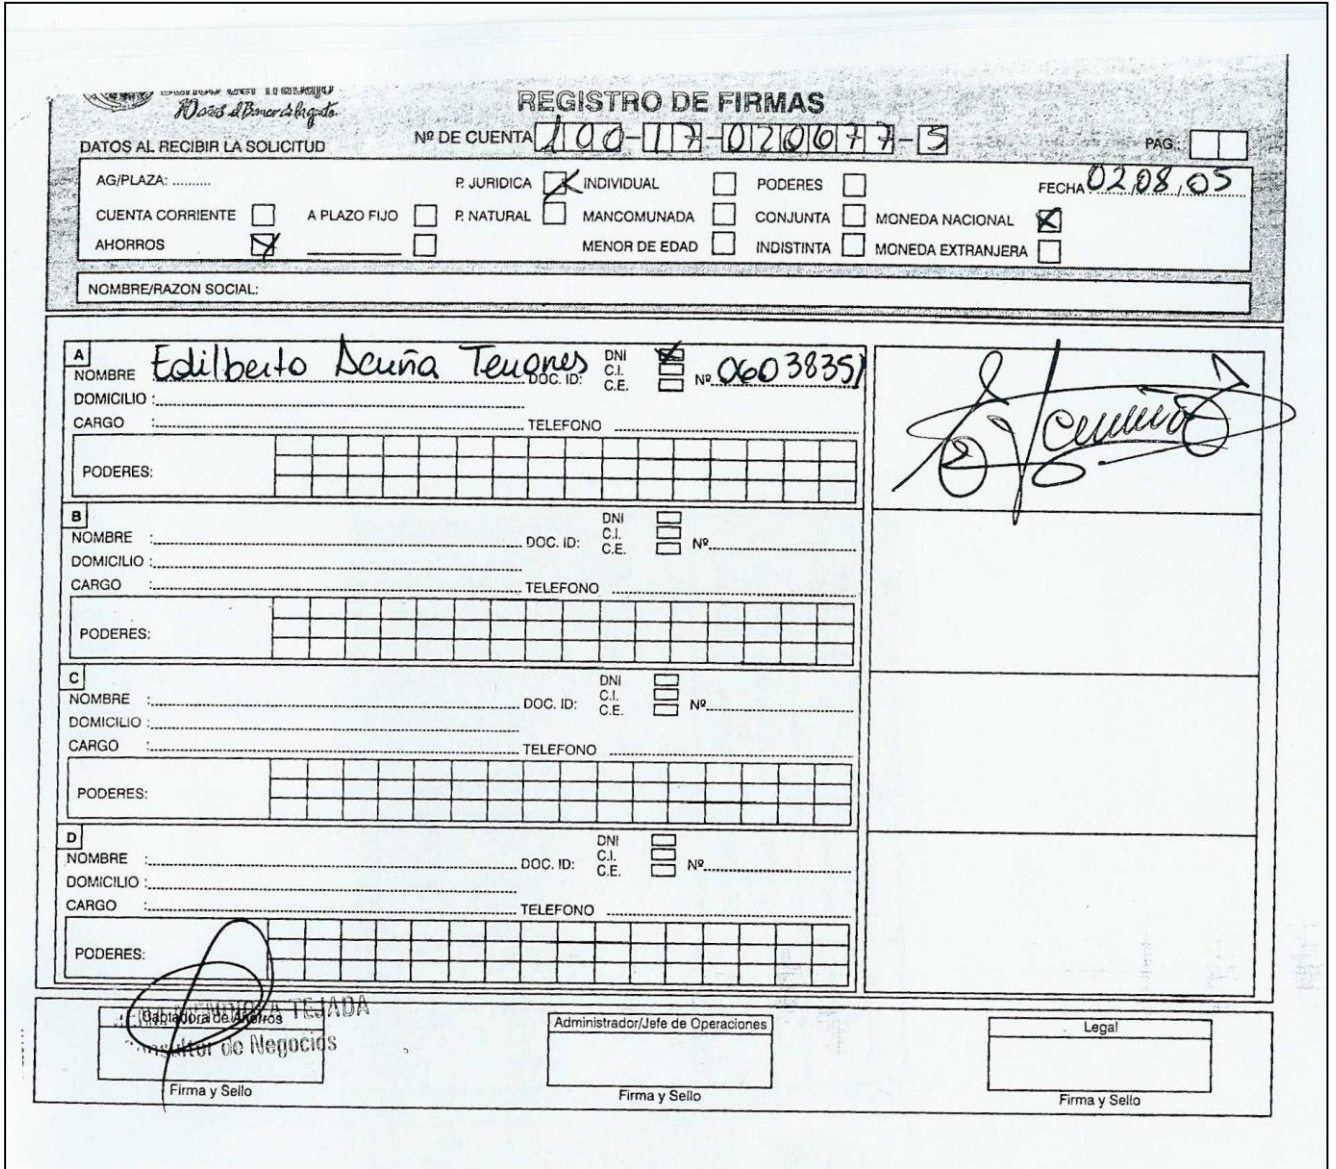 Banco del Trabajo
REGISTRO DE FIRMAS
Nº DE CUENTA 100-17-020677-5 PAG.:
DATOS AL RECIBIR LA SOLICITUD
AG/PLAZA: .......... P. JURIDICA INDIVIDUAL PODERES FECHA 02,08,05
CUENTA CORRIENTE A PLAZO FIJO P. NATURAL MANCOMUNADA CONJUNTA MONEDA NACIONAL
AHORROS MENOR DE EDAD INDISTINTA MONEDA EXTRANJERA
NOMBRE/RAZON SOCIAL:
A
NOMBRE Edilberto Acuña DOC. ID: DNI C.I. C.E. Nº 06038351
DOMICILIO :
CARGO : TELEFONO
PODERES:
B
NOMBRE : DOC. ID: DNI C.I. C.E. Nº
DOMICILIO :
CARGO : TELEFONO
PODERES:
C
NOMBRE : DOC. ID: DNI C.I. C.E. Nº
DOMICILIO :
CARGO : TELEFONO
PODERES:
D
NOMBRE : DOC. ID: DNI C.I. C.E. Nº
DOMICILIO :
CARGO : TELEFONO
PODERES:
TEJADA
Captadora de Ahorros Administrador/Jefe de Operaciones Legal
Consultor de Negocios
Firma y Sello Firma y Sello Firma y Sello